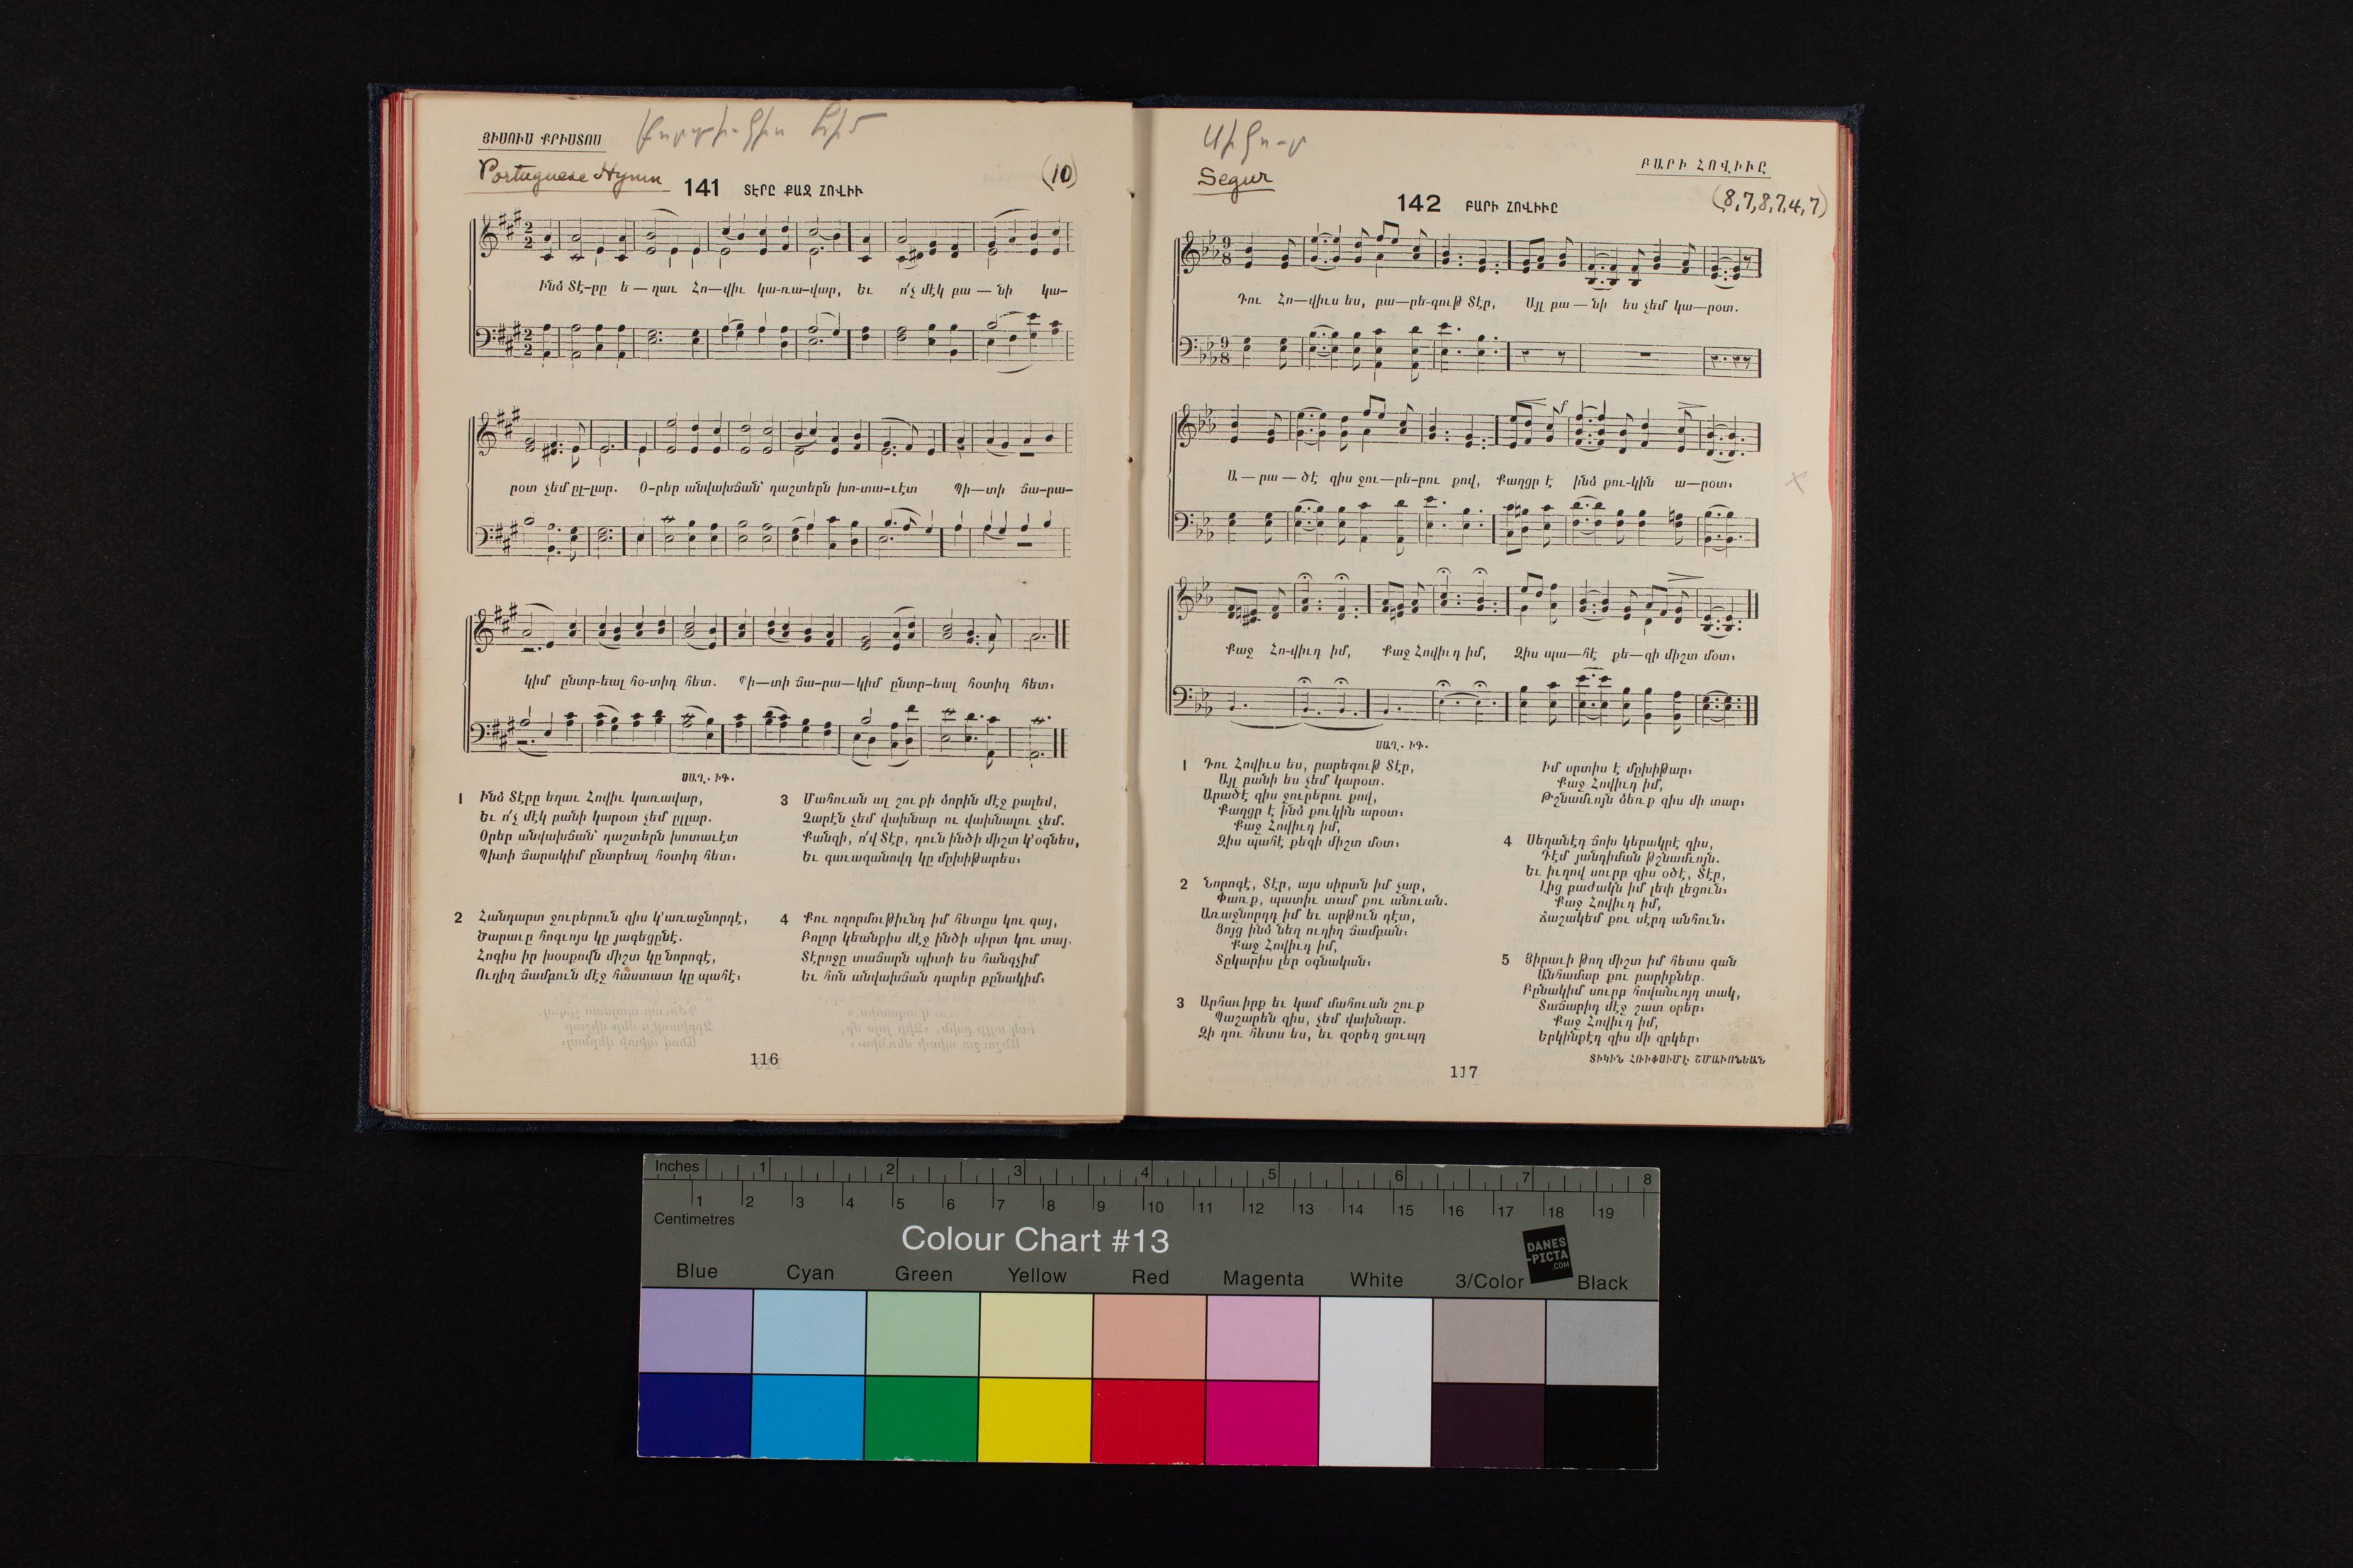 ՅԻՍՈՒՍ ՔՐԻՍՏՈՍ
Portuguese Hymn
(10)
141 ՏԷՐԸ ՔԱՋ ՀՈՎԻՒ
Ինձ Տէ—րը ե — ղաւ Հո—վիւ կա-ռա—վար, Եւ ո՛չ մէկ բա — նի կա-
րօտ չեմ ըլ-լար. Օ-րեր անվախճան՝ դաշտերն խո-տա-ւէտ Պի—տի ճա-րա-
կիմ ընտր-եալ հօ-տիդ հետ. Պի—տի ճա-րա—կիմ ընտր-եալ հօտիդ հետ։
ՍԱՂ. ԻԳ.
1 Ինձ Տէրը եղաւ Հովիւ կառավար,
Եւ ո՛չ մէկ բանի կարօտ չեմ ըլլար.
Օրեր անվախճան՝ դաշտերն խոտաւէտ
Պիտի ճարակիմ ընտրեալ հօտիդ հետ։
2 Հանդարտ ջուրերուն զիս կ՚առաջնորդէ,
Ծարաւը հոգւոյս կը յագեցընէ.
Հոգիս իր խօսքովն միշտ կը նորոգէ,
Ուղիղ ճամբուն մէջ հաստատ կը պահէ։
3 Մահուան ալ շուքի ձորին մէջ քալեմ,
Չարէն չեմ վախնար ու վախնալու չեմ.
Քանզի, ո՛վ Տէր, դուն ինծի միշտ կ՚օգնես,
Եւ գաւազանովդ կը մըխիթարես։
4 Քու ողորմութիւնդ իմ հետըս կու գայ,
Բոլոր կեանքիս մէջ ինծի սիրտ կու տայ.
Տէրոջը տաճարն պիտի ես հանգչիմ
Եւ հոն անվախճան դարեր բընակիմ։
116
Segur
ԲԱՐԻ ՀՈՎԻՒԸ
(8,7,8,7,4,7)
142 ԲԱՐԻ ՀՈՎԻՒԸ
Դու Հո—վիւս ես, բա—րե-գութ Տէր, Այլ բա — նի ես չեմ կա—րօտ.
Ա — րա — ծէ զիս ջու—րե-րու քով, Քաղցր է ինձ քու-կին ա—րօտ։
Քաջ Հո-վիւդ իմ, Քաջ Հովիւդ իմ, Զիս պա—հէ քե—զի միշտ մօտ։
ՍԱՂ. ԻԳ.
1 Դու Հովիւս ես, բարեգութ Տէր,
Այլ բանի ես չեմ կարօտ.
Արածէ զիս ջուրերու քով,
Քաղցր է ինձ քուկին արօտ։
Քաջ Հովիւդ իմ,
Զիս պահէ քեզի միշտ մօտ։
2 Նորոգէ, Տէր, այս սիրտն իմ չար,
Փառք, պատիւ տամ քու անուան.
Առաջնորդդ իմ եւ արթուն դէտ,
Ցոյց ինձ նեղ ուղիղ ճամբան։
Քաջ Հովիւդ իմ,
Տըկարիս լեր օգնական։
3 Արհաւիրք եւ կամ մահուան շուք
Պաշարեն զիս, չեմ վախնար.
Զի դու հետս ես, եւ զօրեղ ցուպդ
Իմ սրտիս է մըխիթար։
Քաջ Հովիւդ իմ,
Թշնամւոյն ձեռք զիս մի տար։
4 Սեղանէդ ճոխ կերակրէ զիս,
Դէմ յանդիման թշնամւոյն.
Եւ իւղով սուրբ զիս օծէ, Տէր,
Լից բաժակն իմ լեփ լեցուն։
Քաջ Հովիւդ իմ,
Ճաշակեմ քու սէրդ անհուն։
5 Յիրաւի թող միշտ իմ հետս գան
Անհամար քու բարիքներ.
Բընակիմ սուրբ հովանւոյդ տակ,
Տաճարիդ մէջ շատ օրեր։
Քաջ Հովիւդ իմ,
Երկինքէդ զիս մի զրկեր։
ՏԻԿԻՆ ՀՌԻՓՍԻՄԷ ՇՄԱՒՈՆԵԱՆ
117
Inches 1 2 3 4 5 6 7 8
1 2 3 4 5 6 7 8 9 10 11 12 13 14 15 16 17 18 19
Centimetres
Colour Chart #13
DANES
-PICTA
.COM
Blue Cyan Green Yellow Red Magenta White 3/Color Black